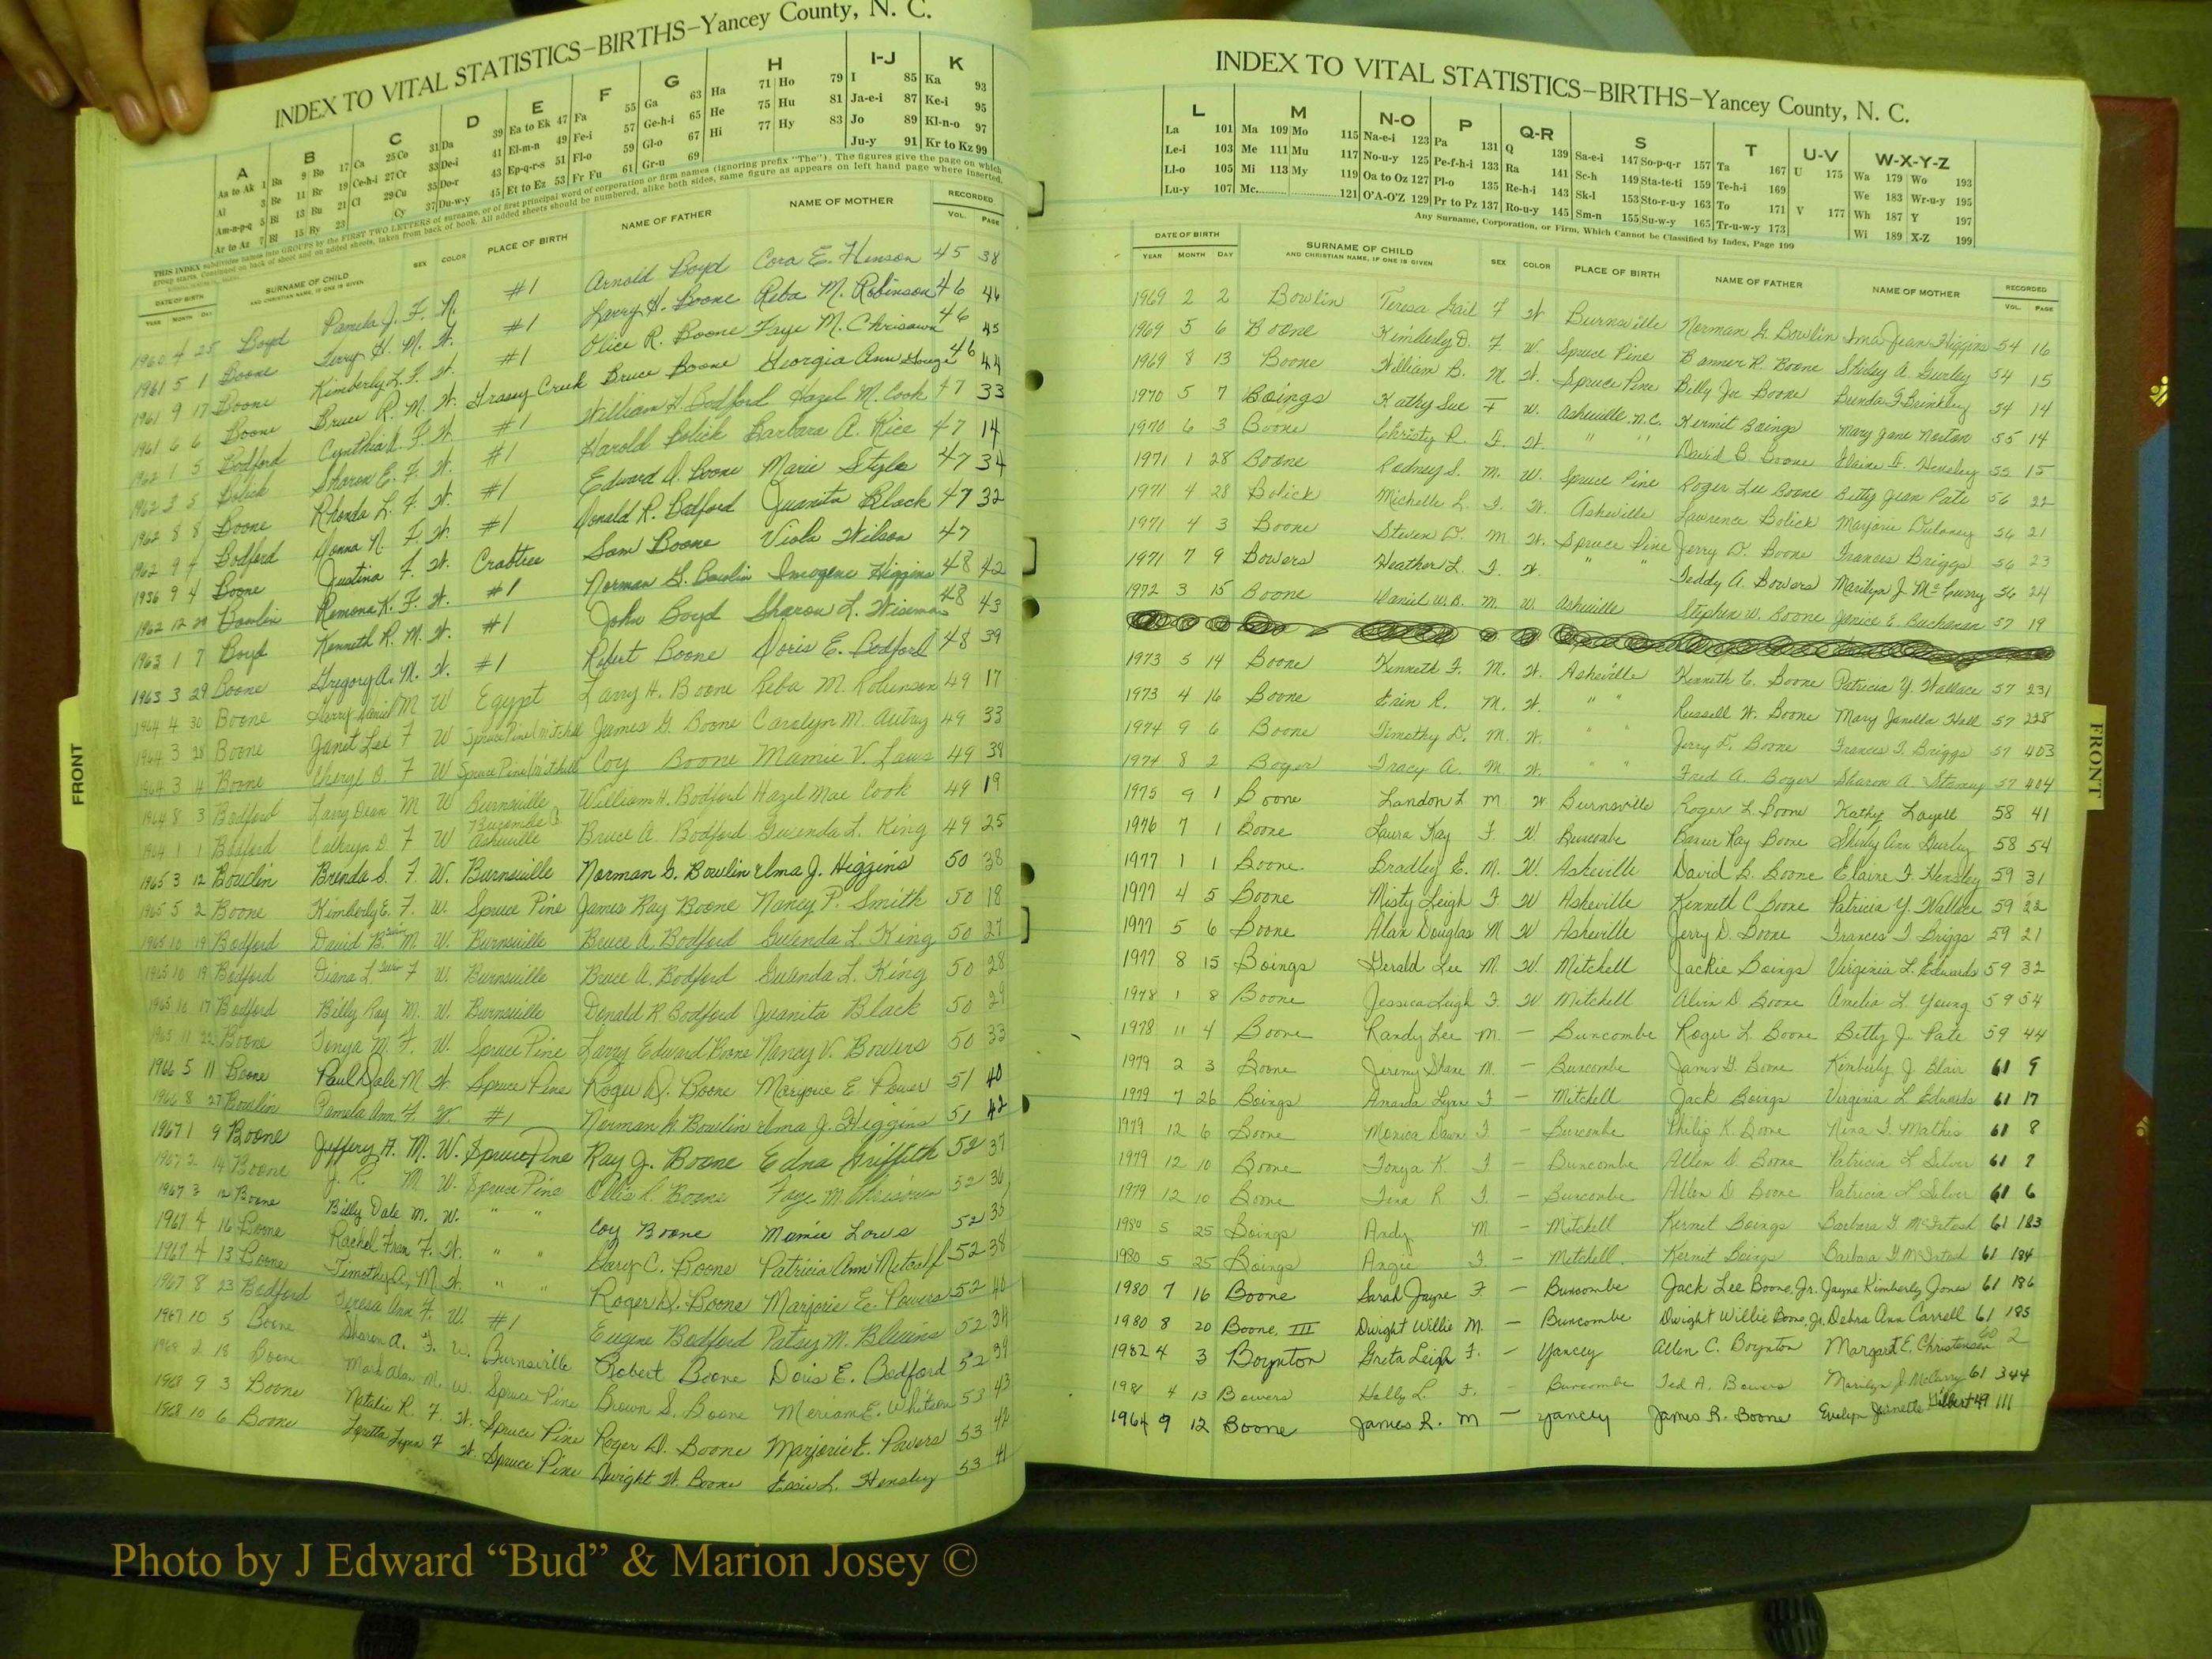 INDEX TO VITAL STATISTICS–BIRTHS–Yancey County, N. C.
A B C D E F G H I-J K
Aa to Ak 1 Ba 9 Bo 17 Ca 25 Co 31 Da 39 Ea to Ek 47 Fa 55 Ga 63 Ha 71 Ho 79 I 85 Ka 93
Al 3 Be 11 Br 19 Ce-h-i 27 Cr 33 De-i 41 El-m-n 49 Fe-i 57 Ge-h-i 65 He 75 Hu 81 Ja-e-i 87 Ke-i 95
Am-n-p-q 5 Bi 13 Bu 21 Cl 29 Cu 35 Do-r 43 Ep-q-r-s 51 Fl-o 59 Gl-o 67 Hi 77 Hy 83 Jo 89 Kl-n-o 97
Ar to Az 7 Bl 15 By 23 Cy 37 Du-w-y 45 Et to Ez 53 Fr Fu 61 Gr-u 69 Ju-y 91 Kr to Kz 99
THIS INDEX subdivides names into GROUPS by the FIRST TWO LETTERS of surname, or of first principal word of corporation or firm names (ignoring prefix "The"). The figures give the page on which
group starts. Continued on back of sheet and on added sheets, taken from back of book. All added sheets should be numbered, alike both sides, same figure as appears on left hand page where inserted.
DATE OF BIRTH SURNAME OF CHILD SEX COLOR PLACE OF BIRTH NAME OF FATHER NAME OF MOTHER RECORDED
YEAR MONTH DAY AND CHRISTIAN NAME, IF ONE IS GIVEN VOL. PAGE
1960 4 25 Boyd Pamela J. F. W. #1 Arnold Boyd Cora E. Henson 45 38
1961 5 1 Boone Terry H. M. W. #1 Larry H. Boone Reba M. Robinson 46 46
1961 9 17 Boone Kimberly L. F. W. #1 Olice R. Boone Faye M. Chrisawn 46 45
1961 6 6 Boone Bruce R. M. W. Grassy Creek Bruce Boone Georgia Ann 46 44
1962 1 5 Bodford Cynthia F. W. #1 William H Bodford Hazel M. Cook 47 33
1962 3 5 Bolick Sharon E. F. W. #1 Harold Bolick Barbara A. Rice 47 14
1962 8 8 Boone Rhonda L. F. W. #1 Edward A. Boone Marie Styles 47 34
1962 9 4 Bodford Donna N. F. W. #1 Donald R. Bodford Juanita Black 47 32
1936 9 4 Boone Justina F. W. Crabtree Sam Boone Viola Wilson 47
1962 12 20 Bowlin Remona K. F. W. #1 Norman G. Bowlin Imogene Higgins 48 42
1963 1 7 Boyd Kenneth R. M. W. #1 John Boyd Sharon L. Wiseman 48 43
1963 3 29 Boone Gregory A. M. W. #1 Robert Boone Doris E. Bodford 48 39
1964 4 30 Boone Larry Daniel M W Egypt Larry H. Boone Reba M. Robinson 49 17
1964 3 28 Boone Janet Lee F W Spruce Pine (Mitchell James G. Boone Carolyn M. Autry 49 33
1964 3 4 Boone Cheryl D. F W Spruce Pine (Mitchell Coy Boone Mamie V. Laws 49 38
1964 8 3 Bodford Larry Dean M W Burnsville William H. Bodford Hazel Mae Cook 49 19
1964 1 1 Bodford Cathryn D. F W Buncombe Co Asheville Bruce A Bodford Gwenda L. King 49 25
1965 3 12 Bowlin Brenda S. F. W. Burnsville Norman G. Bowlin Ima J. Higgins 50 38
1965 5 2 Boone Kimberly E. F. W. Spruce Pine James Ray Boone Nancy P. Smith 50 18
1965 10 19 Bodford David B. Twin M W. Burnsville Bruce A. Bodford Gwenda L. King 50 27
1965 10 19 Bodford Diana L Twin F W. Burnsville Bruce A. Bodford Gwenda L. King 50 28
1965 10 17 Bodford Billy Ray M. W. Burnsville Donald R Bodford Juanita Black 50 29
1965 11 22 Boone Tonya M. F. W. Spruce Pine Larry Edward Boone Nancy V. Bowers 50 33
1966 5 11 Boone Paul Dale M W. Spruce Pine Roger D. Boone Marjorie E. Power 51 40
1966 8 27 Bowlin Pamela Ann F W. #1 Norman G. Bowlin Ima J. Higgins 51 42
1967 1 9 Boone Jeffery A. M. W. Spruce Pine Ray J. Boone Edna Griffith 52 37
1967 2 14 Boone J. R. M W. Spruce Pine Ollis R. Boone Faye M. Chrisawn 52 36
1967 3 12 Boone Billy Dale M. W. " " Coy Boone Mamie Laws 52 35
1967 4 16 Boone Rachel Fran F. W. " " Gary C. Boone Patricia Ann Metcalf 52 38
1967 4 13 Boone Timothy A. M W. " " Roger D. Boone Marjorie E. Powers 52 40
1967 8 23 Bodford Teresa Ann F. W. #1 Eugene Bodford Patsy M. Blevins 52 34
1967 10 5 Boone Sharon A. F. W. Burnsville Robert Boone Doris E. Bodford 52 39
1968 2 18 Boone Mark Alan M. W. Spruce Pine Brown S. Boone Meriam E. Whitson 53 43
1968 9 3 Boone Natalie R. F. W. Spruce Pine Roger D. Boone Marjorie E. Powers 53 42
1968 10 6 Boone Loretta Lynn F W. Spruce Pine Dwight W. Boone Essie L. Hensley 53 41
FRONT
INDEX TO VITAL STATISTICS–BIRTHS–Yancey County, N. C.
L M N-O P Q-R S T U-V W-X-Y-Z
La 101 Ma 109 Mo 115 Na-e-i 123 Pa 131 Q 139 Sa-e-i 147 So-p-q-r 157 Ta 167 U 175 Wa 179 Wo 193
Le-i 103 Me 111 Mu 117 No-u-y 125 Pe-f-h-i 133 Ra 141 Sc-h 149 Sta-te-ti 159 Te-h-i 169 We 183 Wr-u-y 195
Ll-o 105 Mi 113 My 119 Oa to Oz 127 Pl-o 135 Re-h-i 143 Sk-l 153 Sto-r-u-y 163 To 171 V 177 Wh 187 Y 197
Lu-y 107 Mc 121 O'A-O'Z 129 Pr to Pz 137 Ro-u-y 145 Sm-n 155 Su-w-y 165 Tr-u-w-y 173 Wi 189 X-Z 199
Any Surname, Corporation, or Firm, Which Cannot be Classified by Index, Page 199
DATE OF BIRTH SURNAME OF CHILD SEX COLOR PLACE OF BIRTH NAME OF FATHER NAME OF MOTHER RECORDED
YEAR MONTH DAY AND CHRISTIAN NAME, IF ONE IS GIVEN VOL. PAGE
1969 2 2 Bowlin Teresa Gail F W Burnsville Norman G. Bowlin Ima Jean Higgins 54 16
1969 5 6 Boone Kimberly D. F. W. Spruce Pine Banner R. Boone Shirley A. Gurley 54 15
1969 8 13 Boone William B. M. W. Spruce Pine Billy Joe Boone Brenda F Brinkley 54 14
1970 5 7 Boings Kathy Sue F W. Asheville N.C. Kermit Boings Mary Jane Norton 55 14
1970 6 3 Boone Christy R. F. W. " " David B. Boone Elaine F. Hensley 55 15
1971 1 28 Boone Rodney S. M. W. Spruce Pine Roger Lee Boone Betty Jean Pate 56 22
1971 4 28 Bolick Michelle L. F. W. Asheville Lawrence Bolick Marjorie Dulaney 56 21
1971 4 3 Boone Steven D. M W. Spruce Pine Jerry D. Boone Frances Briggs 56 23
1971 7 9 Bowers Heather L. F. W. " " Teddy A. Bowers Marilyn J. McCurry 56 24
1972 3 15 Boone Daniel W.B. M. W. Asheville Stephen W. Boone Janice E. Buchanan 57 19
1973 5 14 Boone Kenneth F. M. W. Asheville Kenneth C. Boone Patricia Y. Wallace 57 231
1973 4 16 Boone Erin R. M. W. " " Russell W. Boone Mary Janella Hall 57 228
1974 9 6 Boone Timothy D. M. W. " " Jerry D. Boone Frances F. Briggs 57 403
1974 8 2 Boger Tracy A. M. W. " " Fred A. Boger Sharon A. 57 404
1975 9 1 Boone Landon L M W. Burnsville Roger L. Boone Kathy Layell 58 41
1976 7 1 Boone Laura Kay F. W. Buncombe Banner Ray Boone Shirly Ann Gurley 58 54
1977 1 1 Boone Bradley E. M. W. Asheville David B. Boone Elaine F. Hensley 59 31
1977 4 5 Boone Misty Leigh F W Asheville Kenneth C Boone Patricia Y. Wallace 59 22
1977 5 6 Boone Alan Douglas M W Asheville Jerry D. Boone Frances F Briggs 59 21
1977 8 15 Boings Gerald Lee M. W. Mitchell Jackie Boings Virginia L. Edwards 59 32
1978 1 8 Boone Jessica Leigh F. W Mitchell Alvin D Boone Amelia L. Young 59 54
1978 11 4 Boone Randy Lee M – Buncombe Roger L. Boone Betty J. Pate 59 44
1979 2 3 Boone Jeremy Shane M. – Buncombe James G. Boone Kimberly J. Blair 61 9
1979 7 26 Boings Amanda Lynn F – Mitchell Jack Boings Virginia L Edwards 61 17
1979 12 6 Boone Monica Dawn F. – Buncombe Philip K. Boone Nina F. Mathis 61 8
1979 12 10 Boone Tonya K. F – Buncombe Allen D. Boone Patricia L Silver 61 7
1979 12 10 Boone Tina R F. – Buncombe Allen D Boone Patricia L Silver 61 6
1980 5 25 Boings Andy M – Mitchell Kermit Boings Barbara G. McIntosh 61 183
1980 5 25 Boings Angie F. – Mitchell. Kermit Boings Barbara G McIntosh 61 184
1980 7 16 Boone Sarah Jayne F – Buncombe Jack Lee Boone, Jr. Jayne Kimberly Jones 61 186
1980 8 20 Boone, III Dwight Willie M. – Buncombe Dwight Willie Boone, Jr. Debra Ann Carroll 61 185
1982 4 3 Boynton Greta Leigh F. – Yancey Allen C. Boynton Margaret E. Christensen 60 2
1981 4 13 Bowers Holly L. F. – Buncombe Ted A. Bowers Marilyn J McCurry 61 344
1964 9 12 Boone James R. M – Yancey James R. Boone Evelyn Jeanette Gilbert 49 111
FRONT
Photo by J Edward “Bud” & Marion Josey ©